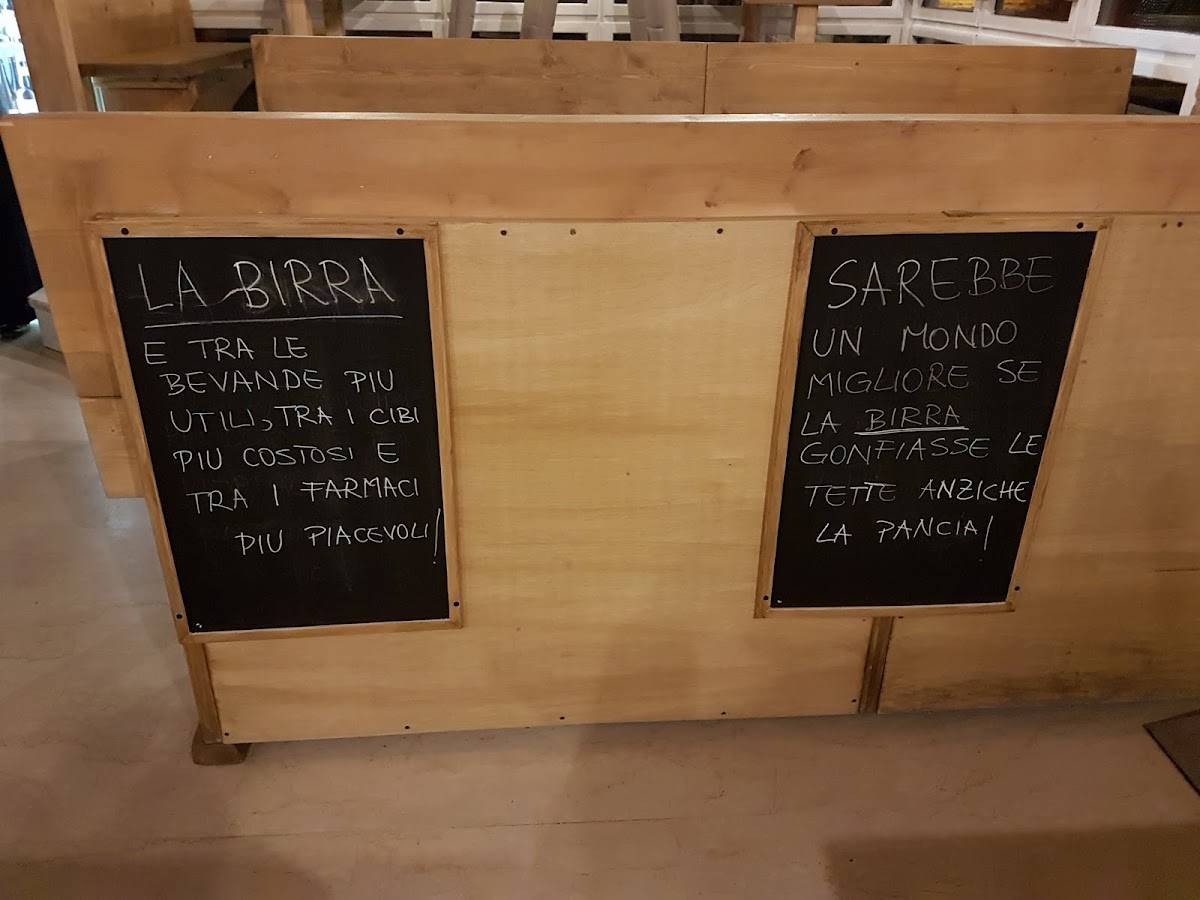 LA BIRRA
E TRA LE
BEVANDE PIU
UTILI, TRA I CIBI
PIU COSTOSI E
TRA I FARMACI
PIU PIACEVOLI!
SAREBBE
UN MONDO
MIGLIORE SE
LA BIRRA
GONFIASSE LE
TETTE ANZICHE
LA PANCIA!